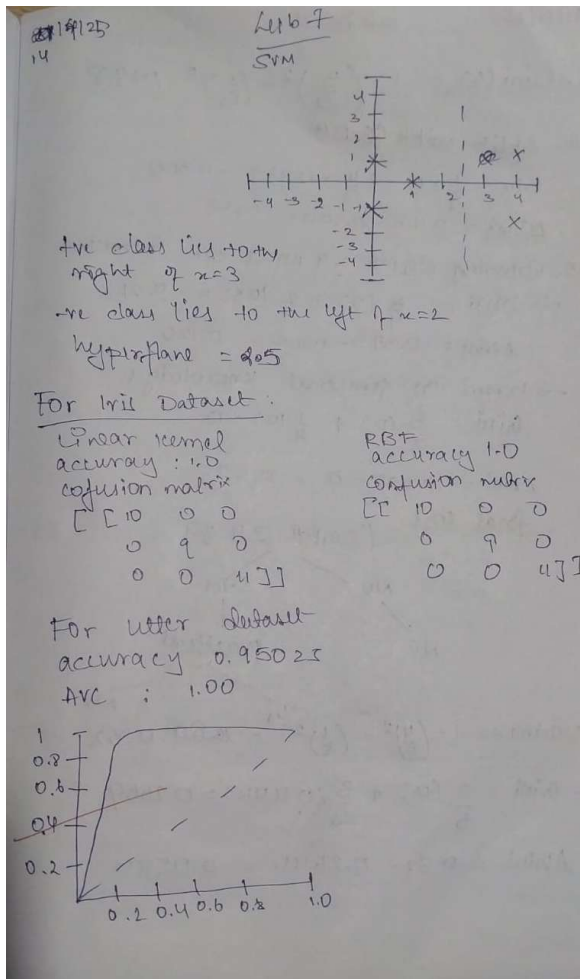 Lab 7
14
SVM
4
3
2
1
-4 -3 -2 -1 1 2 3 4
-1
-2
-3
-4
+ve class lies to the
right of x=3
-ve class lies to the left of x=2
hyperplane = 2.5
For Iris Dataset :
Linear kernel
accuracy : 1.0
cofusion matrix
[ [ 10 0 0
0 9 0
0 0 11 ] ]
RBF
accuracy 1.0
confusion matrix
[[ 10 0 0
0 9 0
0 0 11 ] ]
For letter dataset
accuracy 0.95025
AUC : 1.00
1
0.8
0.6
0.4
0.2
0.2 0.4 0.6 0.8 1.0